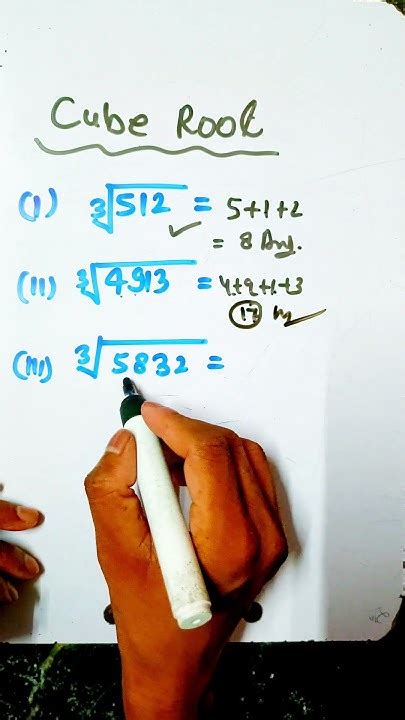 Cube Root
(I) ∛512 = 5+1+2
= 8 Ans.
(II) ∛4913 = 4+9+1+3
17
(III) ∛5832 =